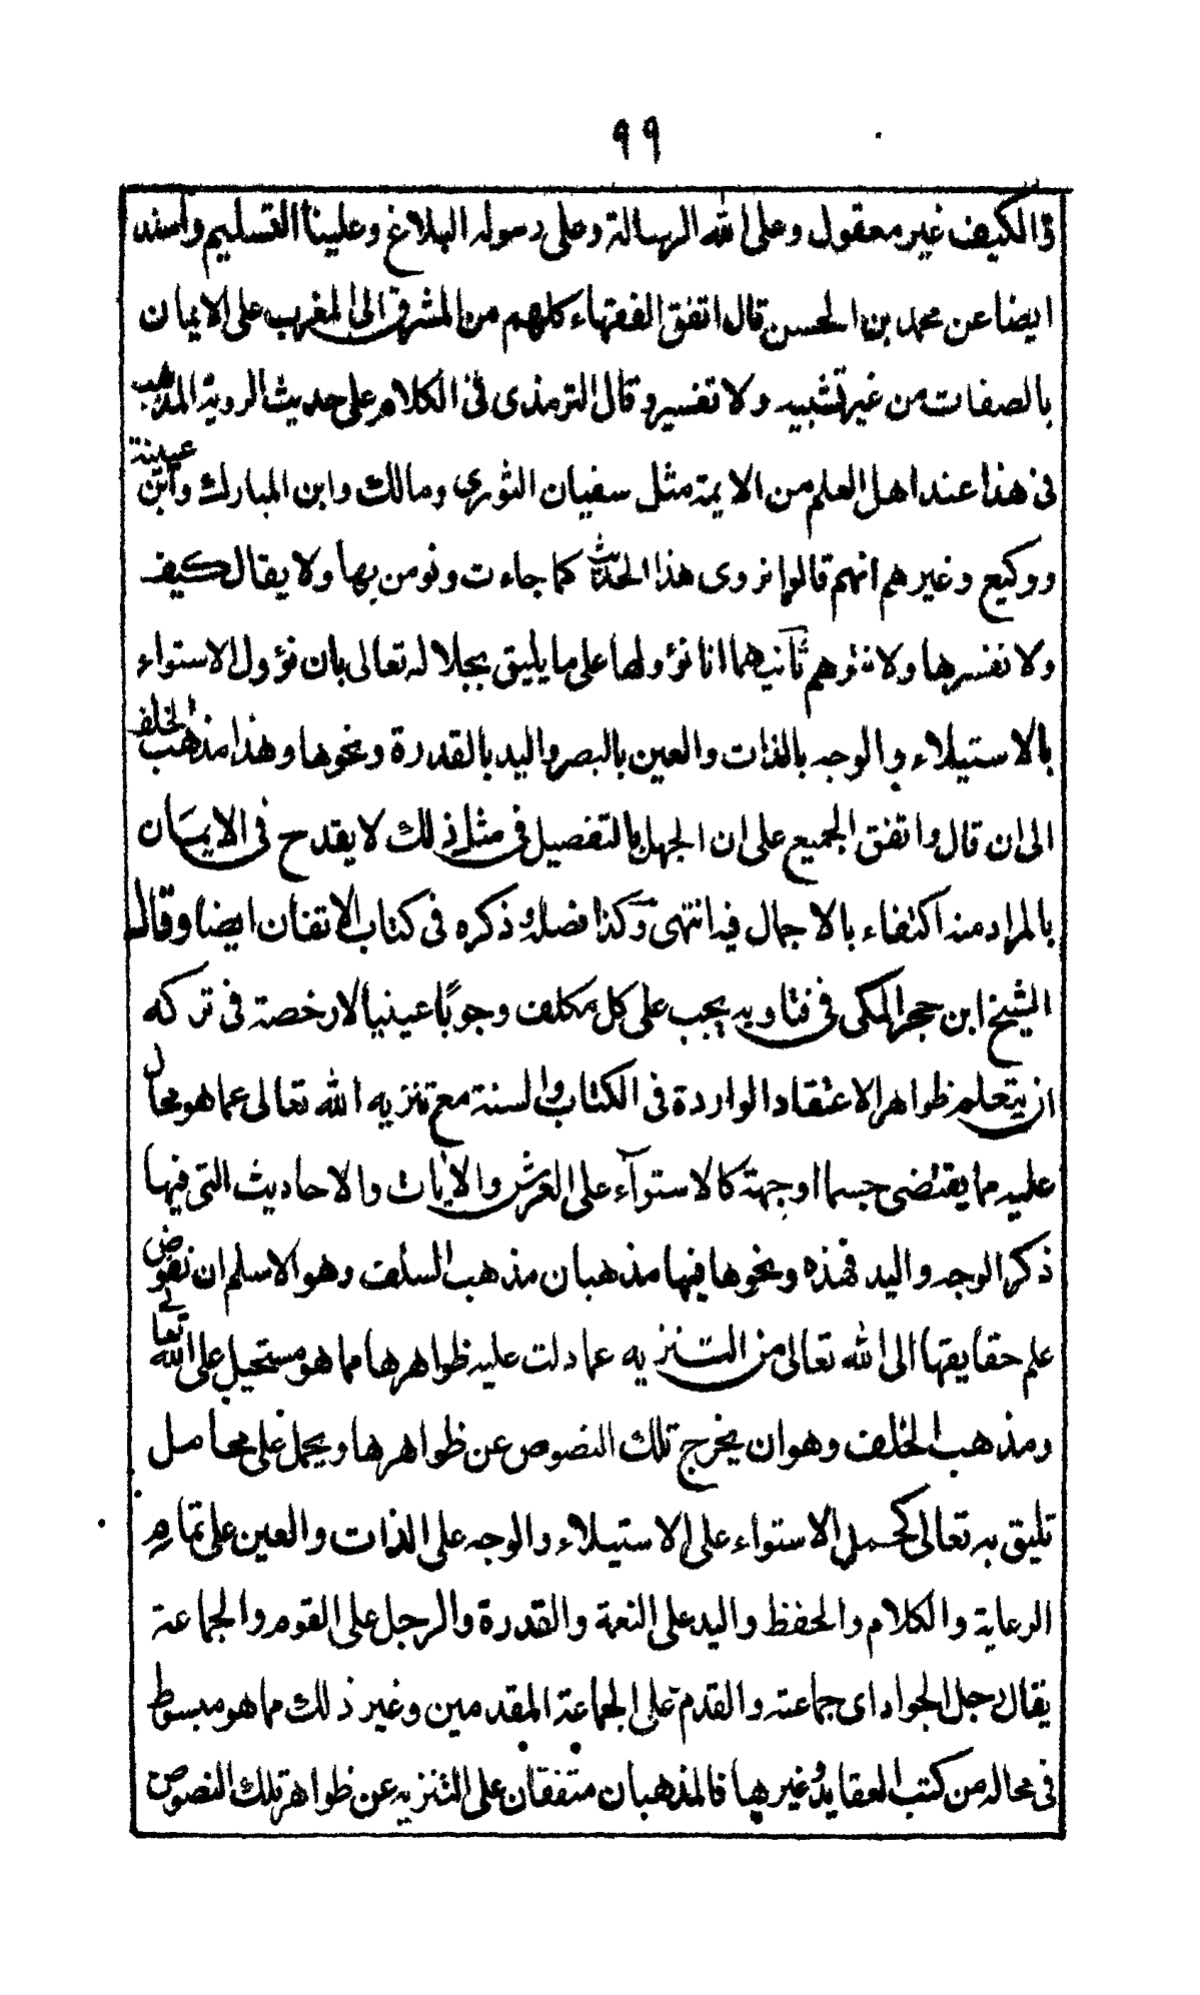 ٩٩
ق الكيف غير معقول وعلى الله الرسالة وعلى رسوله البلاغ وعلينا التسليم واسند
ايضا عن محمد بن الحسن قال اتفق الفقهاء كلهم من المشرق الى المغرب على الايمان
بالصفات من غير تشبيه ولا تفسير وقال الترمذى فى الكلام على حديث الروية المذهب
فى هذا عند اهل العلم من الايمة مثل سفيان الثورى ومالك وابن المبارك وابن عيينة
ووكيع وغيرهم انهم قالوا نروى هذا الحديث كما جاءت ونومن بها ولا يقال كيف
ولا نفسرها ولا نتوهم ثانيهما انا نؤولها على ما يليق بجلاله تعالى بان نؤول الاستواء
بالاستيلاء والوجه بالذات والعين بالبصر واليد بالقدرة ونحوها وهذا مذهب الخلف
الى ان قال واتفق الجميع على ان الجهل بالتفصيل فى مثل ذلك لا يقدح فى الايمان
بالمراد منه اكتفاء بالاجمال فيه انتهى وكذا فضله وذكره فى كتاب الاتقان ايضا وقال
الشيخ ابن حجر المكى فى فتاويه يجب على كل مكلف وجوبًا عينيا لا رخصة فى تركه
ان يتعلم ظواهر الاعتقاد الواردة فى الكتاب والسنة مع تنزيه الله تعالى عما هو محال
عليه مما يقتضى جسما اوجهة كالاستوآء على العرش والايات والاحاديث التى فيها
ذكر الوجه واليد فهذه ونحوها فيها مذهبان مذهب السلف وهو الاسلم ان نفوض
علم حقايقها الى الله تعالى من التنزيه عما دلت عليه ظواهرها مما هو مستحيل على الله تعالى
ومذهب الخلف وهو ان يخرج تلك النصوص عن ظواهرها ويحمل على محامل
تليق به تعالى كحمل الاستواء على الاستيلاء والوجه على الذات والعين على تمام
الرعاية والكلام والحفظ واليد على النعمة والقدرة والرجل على القوم والجماعة
يقال رجل الجواد اى جماعته والقدم على الجماعة المقدمين وغير ذلك مما هو مبسوط
فى محاله من كتب العقايد وغيرها فالمذهبان متفقان على التنزيه عن ظواهر تلك النصوص